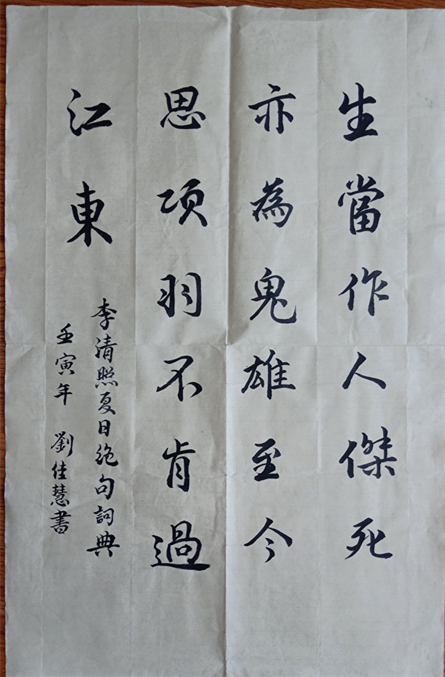 生當作人傑死
亦為鬼雄至今
思项羽不肯過
江東
李清照夏日绝句詞典
壬寅年 劉佳慧書